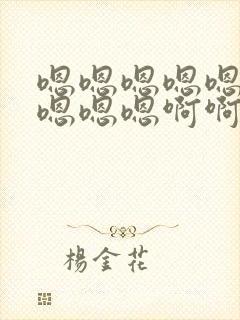 嗯嗯嗯嗯嗯
嗯嗯嗯啊啊
楊金花